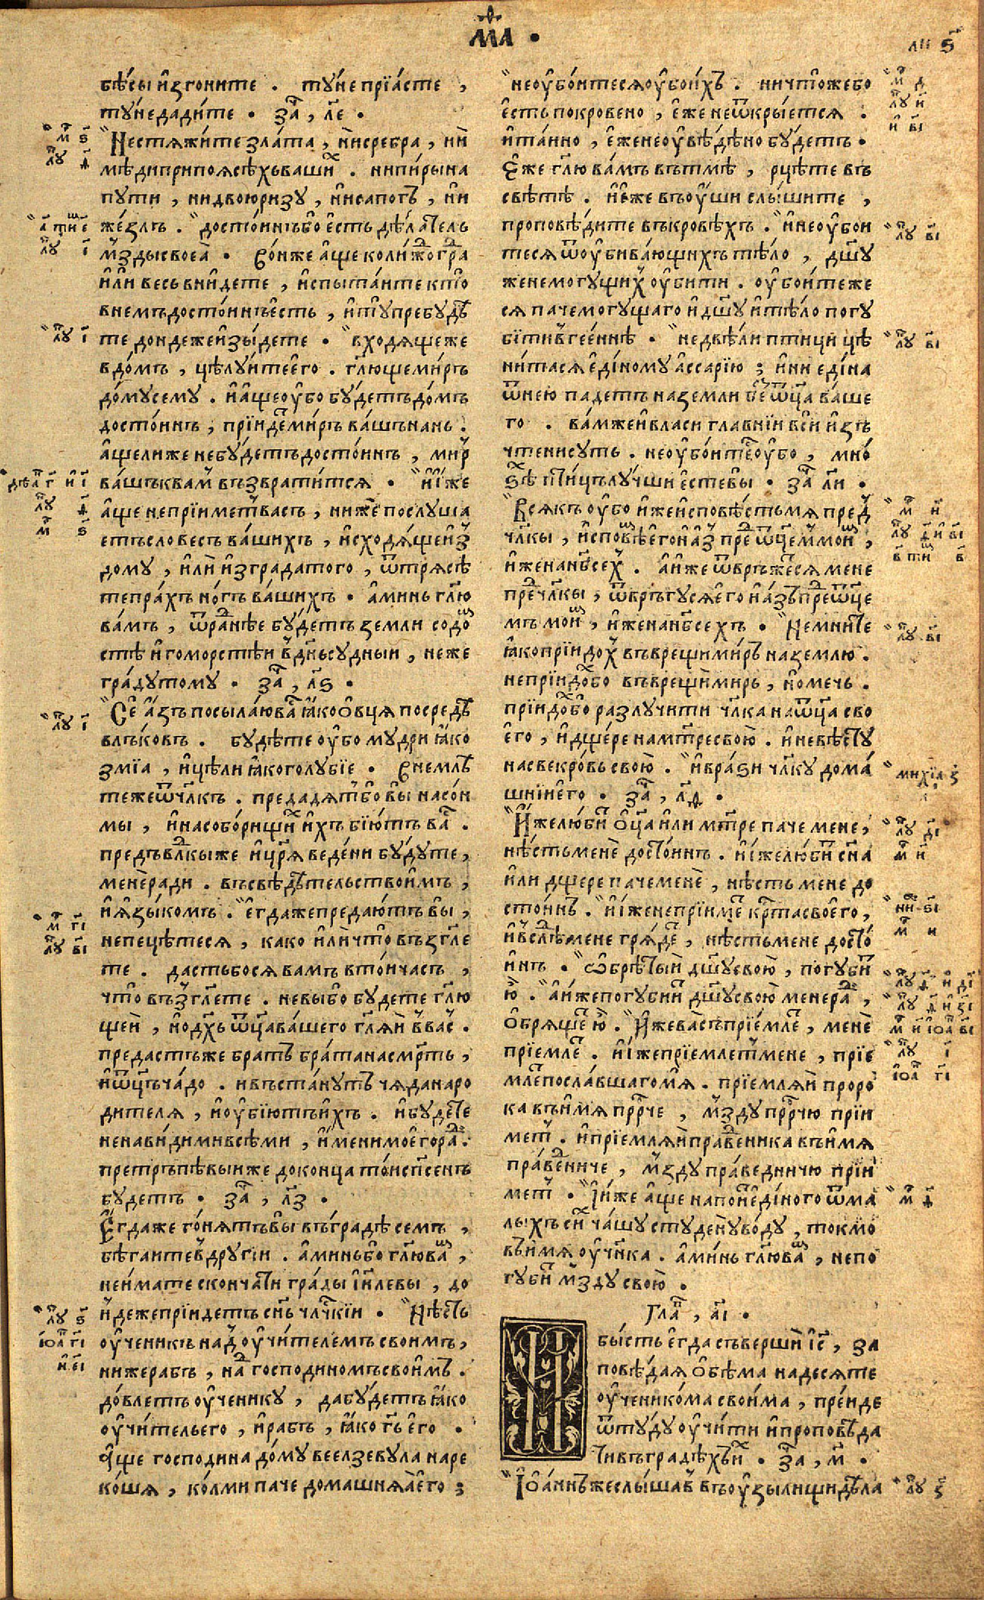 МА҃ •
бѣ́сы и҆згоните . ту́не прїѧ́сте ,
ту́не дадите . за҃ , ле҃ .
Не стѧжи́те зла́та , ни сребра , ни
мѣ́ди при поѧсѣ́хъ вашиⷯ . ни пи́ры на
пути , ни двою ризу , ни сапогъ , ни
же́злъ . досто́инъ бо є҆сть дѣ́латель
мзды своеѧ̀ . Во́ньже а҆ще коли́ждо гра
и҆ли весь вни́дете , и҆спыта́ите кто
в не́мъ досто́инъ є҆сть , и҆ ту̀ пребудѣ
те до́ндеже и҆зы́дете . входѧ́ще же
в до́мъ , цѣлу́ите є҆го . гл҃юще ми́ръ
до́му сему . и҆ а҆ще оу҆бо бу́детъ до́мъ
досто́инъ , прїидеⷮ ми́ръ ва́шъ на́нь .
а҆ще ли же не бу́детъ досто́инъ , ми́р
ва́шъ к ва́мъ възврати́тсѧ . и҆ и҆́же
а҆ще не прїи́метъ ва́съ , ниже послу́ша
етъ слове́съ ва́шихъ , и҆сходѧ́ще и҆з
до́му , и҆лѝ и҆з гра́да того , ѿтрѧсѣ
те пра́хъ но́гъ ва́шихъ . а҆минь гл҃ю
ва́мъ , ѿра́днѣе бу́детъ земли содоⷨ
стѣ и҆ гоморстѣи в д҃нь су́дныи , неже
гра́ду тому . за҃ , лѕ҃ .
Се́ а҆́зъ посыла́ю ваⷭ ꙗ҆́ко о҆́вцѧ посредѣ
влъко́въ . буди́те оу҆бо му́дри ꙗ҆́ко
змїа , и҆ цѣ́ли ꙗ҆́ко голу́бїе . Внемлѣ
те же ѿ чл҃къ . предадѧ́тъ бо вы̀ на со́н
мы , и҆ на собо́рищиⷯ и҆́хъ бїю́тъ ваⷭ .
предъ влⷣкы же и҆ цр҃ѧ веде́ни бу́дуте ,
менѐ ради . въ свѣдѣ́тельство и҆́мъ ,
и҆ ꙗ҆зы́комъ . є҆гда́ же предаю́тъ вы̀ ,
не пецѣ́тесѧ , ка́ко и҆лѝ что̀ възгл҃е
те . да́стъ бо сѧ ва́мъ в то́и ча́съ ,
что̀ възгл҃ете . не вы́ бо бу́дете гл҃ю
щеи , но д҃хъ ѿц҃а ва́шего гл҃ѧй в ва́с .
преда́стъ же бра́тъ бра́та на смр҃ть ,
и҆ ѿц҃ъ ча́до . и въста́нутъ чѧ́да на ро
ди́телѧ , и҆ оу҆бїю́тъ и҆́хъ . и҆ бу́дете
ненави́дими всѣ́ми , и҆́мени моего раⷣ .
претръпѣвыи же до конца то́и сп҃сенъ
бу́детъ . за҃ , лз҃ .
Є҆гда́ же го́нѧтъ вы̀ въ гра́дѣ семъ ,
бѣ́гаите в дру́гїи . а҆минь бо гл҃ю ваⷨ ,
не и҆́мате сконча́ти гра́ды їи҃левы , до
и҆деже прїи́детъ сн҃ъ чл҃чкїи . Нѣ́сть
оу҆чени́къ надъ оу҆чи́телемъ свои́мъ ,
ниже ра́бъ , наⷣ господи́номъ свои́мъ .
до́влетъ оу҆ченику , да бу́детъ ꙗ҆́ко
оу҆чи́тель его , и҆ ра́бъ , ꙗ҆́ко гⷭ҇ь є҆го .
А҆ще господи́на до́му веелзеву́ла наре
ко́шѧ , ко́лми па́че дома́шнѧѧ̀ є҆го ;
не оу҆бо́итесѧ оу҆бо и҆́хъ . ничто́же бо
є҆сть покрове́но , є҆́же не ѿкры́етсѧ .
и҆ та́ино , є҆́же не оу҆вѣ́дѣно бу́детъ .
Є҆́же гл҃ю ва́мъ въ тмѣ̀ , рцѣ́те въ
свѣ́тѣ . и҆ є҆́же въ оу҆́ши слы́шите ,
проповѣ́дите въ кро́вѣхъ . и҆ не оу҆бои
тесѧ ѿ оу҆бива́ющихъ тѣ́ло , дш҃у
же не могу́щиⷯ оу҆би́ти . оу҆бо́ите же
сѧ па́че могу́щаго и҆ дш҃у и҆ тѣ́ло погу
би́ти в гее́ннѣ . не двѣ́ ли пти́ци цѣ
ни́тасѧ є҆ди́ному а҆сса́рїю ; и҆ ни еди́на
ѿ нею паде́тъ на земли беⷥ ѿц҃а ва́ше
го . ва́м же и вла́си гла́внїи вси и҆зъ
чтени су́ть . не оу҆бо́итесѧ оу҆бо , мно́
ѕѣ пти́цъ лу́чши є҆сте вы̀ . за҃ ли҃ .
Всѧ́къ оу҆бо и҆́же и҆сповѣ́сть мѧ преⷣ
чл҃кы , и҆сповѣⷨ є҆го и҆ а҆́з преⷣ ѿц҃емъ моиⷨ ,
и҆́же на нб҃сех . а҆ и҆́же ѿвръ́жетсѧ мене
преⷣ чл҃кы , ѿвръ́гусѧ є҆го и҆ а҆́зъ преⷣ ѿц҃е
мъ моиⷨ , и҆́же на нб҃сехъ . Не мни́те
ꙗ҆́ко прїидо́х въврещи ми́ръ на зе́млю .
не прїидо́х бо въврещи ми́ръ , но ме́чь .
прїидо́х бо разлучи́ти чл҃ка на ѿц҃а сво
его , и҆ дще́ре на мт҃ре свою̀ . и҆ невѣ́сту
на свекро́вь свою̀ . и҆ врази чл҃ку дома́
шнїи его . за҃ , лѳ҃ .
И҆́же лю́биⷮ о҆ц҃а и҆ли мт҃ре па́че мене ,
нѣ́сть менѐ досто́инъ . и҆ и҆́же лю́биⷮ сн҃а
и҆ли дще́ре па́че менѐ , нѣ́сть мене до
сто́инъ . и҆ и҆́же не прїи́меⷮ крⷭ҇та свое́го ,
и҆ в слѣ́д мене грѧде́ⷮ , нѣ́сть мене досто́
инъ . ѡ҆брѣ́тыи дш҃у свою̀ , погу́биⷮ
ю҆̀ . а҆ и҆́же погуби́в дш҃у свою̀ мене раⷣ ,
о҆брѧ́щеⷮ ю҆̀ . И҆́же ва́съ прїе́млеⷮ , менѐ
прїе́млеⷮ . и҆ и҆́же прїе́млетъ мене , прїе́
млеⷮ посла́вшаго мѧ̀ . прїе́млѧй проро
ка въ и҆́мѧ прⷪ҇рче , мзду̀ прⷪ҇рчю прїи
метъ . и҆ прїе́млѧй пра́веⷣника въ и҆́мѧ
пра́веⷣниче , мзду̀ пра́ведничю прїи
метъ . И҆ и҆́же а҆ще напоиⷮ є҆ди́ного ѿ ма
лыхъ сиⷯ ча́шу студены̀ воды , то́кмо
въ и҆́мѧ оу҆чн҃ка . а҆ми́нь гл҃ю ваⷨ , не по
губиⷮ мзду свою̀ .
Глаⷡ , а҃і .
И бы́сть є҆гда съвершѝ і҆с҃ , за
повѣ́даѧ о҆бѣ́ма на́десѧте
оу҆ченико́ма свои́ма , пре́иде
ѿту́ду оу҆чи́ти и҆ проповѣ́да
ти въ градѣ́хъ иⷯ . за҃ , м҃ .
І҆оа́ннъ же слы́шавъ въ оу҆зы́лищи дѣла